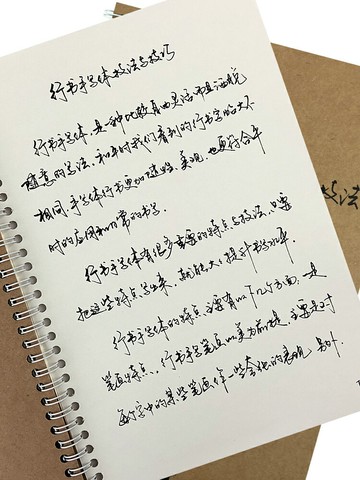 行书手写体技法与技巧
行书手写体，是一种比较自由灵活而且洒脱
随意的写法，和平时我们看到的行书字帖大不
相同，手写体行书更加随验、美观，也更符合平
时的应用和日常的书写。
行书手写体有很多重要的特点与技法，只要
把这些特点学出来，就能大大提升书写水平。
行书手写体的特点，主要有以下几个方面，一是
笔画特点，行书手写笔画以美为前提，主要是对
每个字中的某些笔画作一些变化的表现，另外，
技法